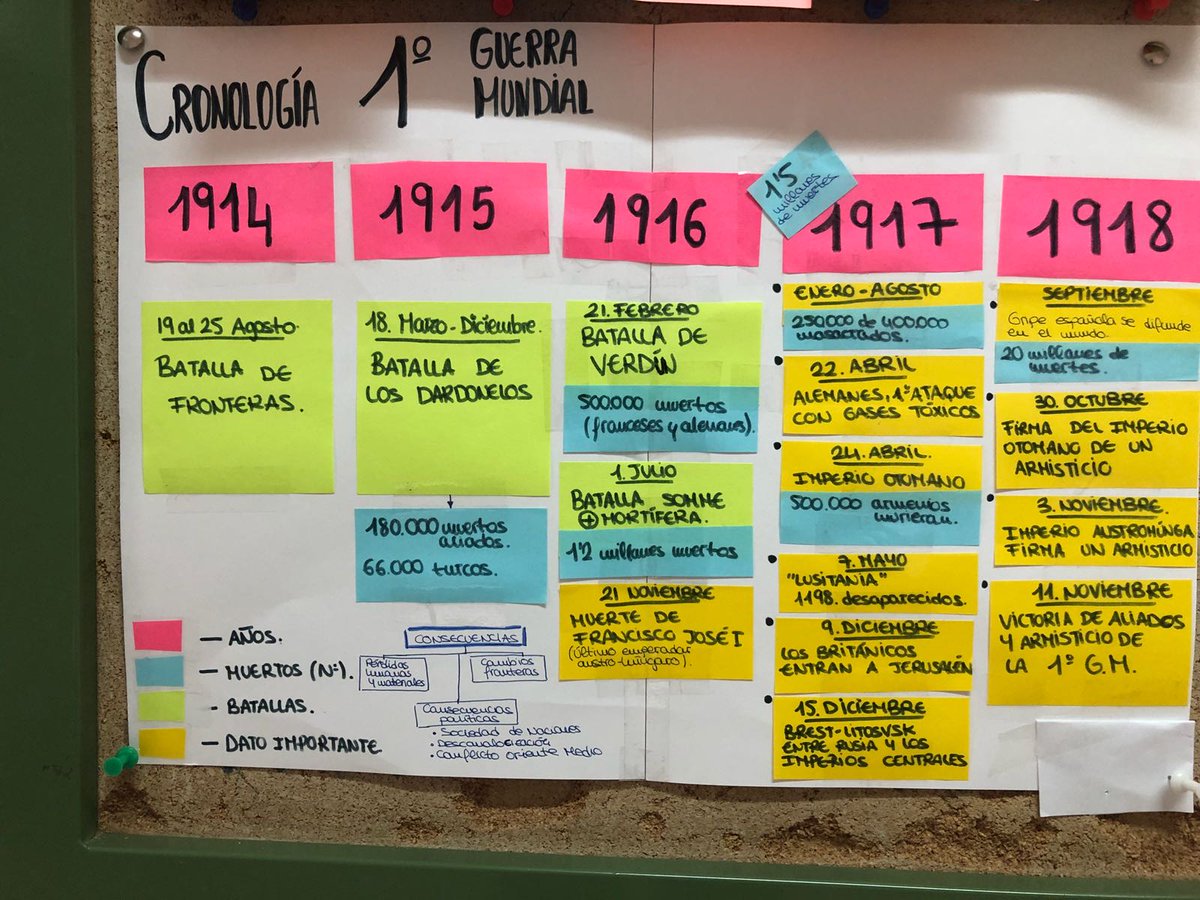 CRONOLOGÍA 1º GUERRA
MUNDIAL
1914
19 al 25 Agosto.
BATALLA DE
FRONTERAS.
1915
18. Marzo-Diciembre.
BATALLA DE
LOS DARDONELOS
180.000 muertos
aliados.
66.000 turcos.
1916
21. FEBRERO
BATALLA DE
VERDÚN
500.000 muertos
(franceses y alemanes).
1. JULIO
BATALLA SOMME
+ MORTÍFERA.
1'2 millones muertos
21 NOVIEMBRE
MUERTE DE
FRANCISCO JOSÉ I
(último emperador
austro-húngaro).
1'5
millones
de muertes.
1917
ENERO-AGOSTO
250.000 de 400.000
masacrados.
22. ABRIL
ALEMANES, 1º ATAQUE
CON GASES TÓXICOS
24. ABRIL.
IMPERIO OTOMANO
500.000 armenios
murieran.
7. MAYO
"LUSITANIA"
1198. desaparecidos.
9. DICIEMBRE
LOS BRITÁNICOS
ENTRAN A JERUSALÉN
15. DICIEMBRE
BREST-LITOSVSK
ENTRE RUSIA Y LOS
IMPERIOS CENTRALES
1918
SEPTIEMBRE
Gripe española se difunde
en el mundo.
20 millones de
muertes.
30. OCTUBRE
FIRMA DEL IMPERIO
OTOMANO DE UN
ARMISTICIO
3. NOVIEMBRE.
IMPERIO AUSTROHÚNGA
FIRMA UN ARMISTICIO
11. NOVIEMBRE.
VICTORIA DE ALIADOS
Y ARMISTICIO DE
LA 1º G.M.
— AÑOS.
— MUERTOS (Nº).
- BATALLAS.
— DATO IMPORTANTE
CONSECUENCIAS
Pérdidas
humanas
y materiales
Cambios
fronteras
Consecuencias
políticas
• Sociedad de Naciones
• Descanalocación
• Conflicto Oriente Medio